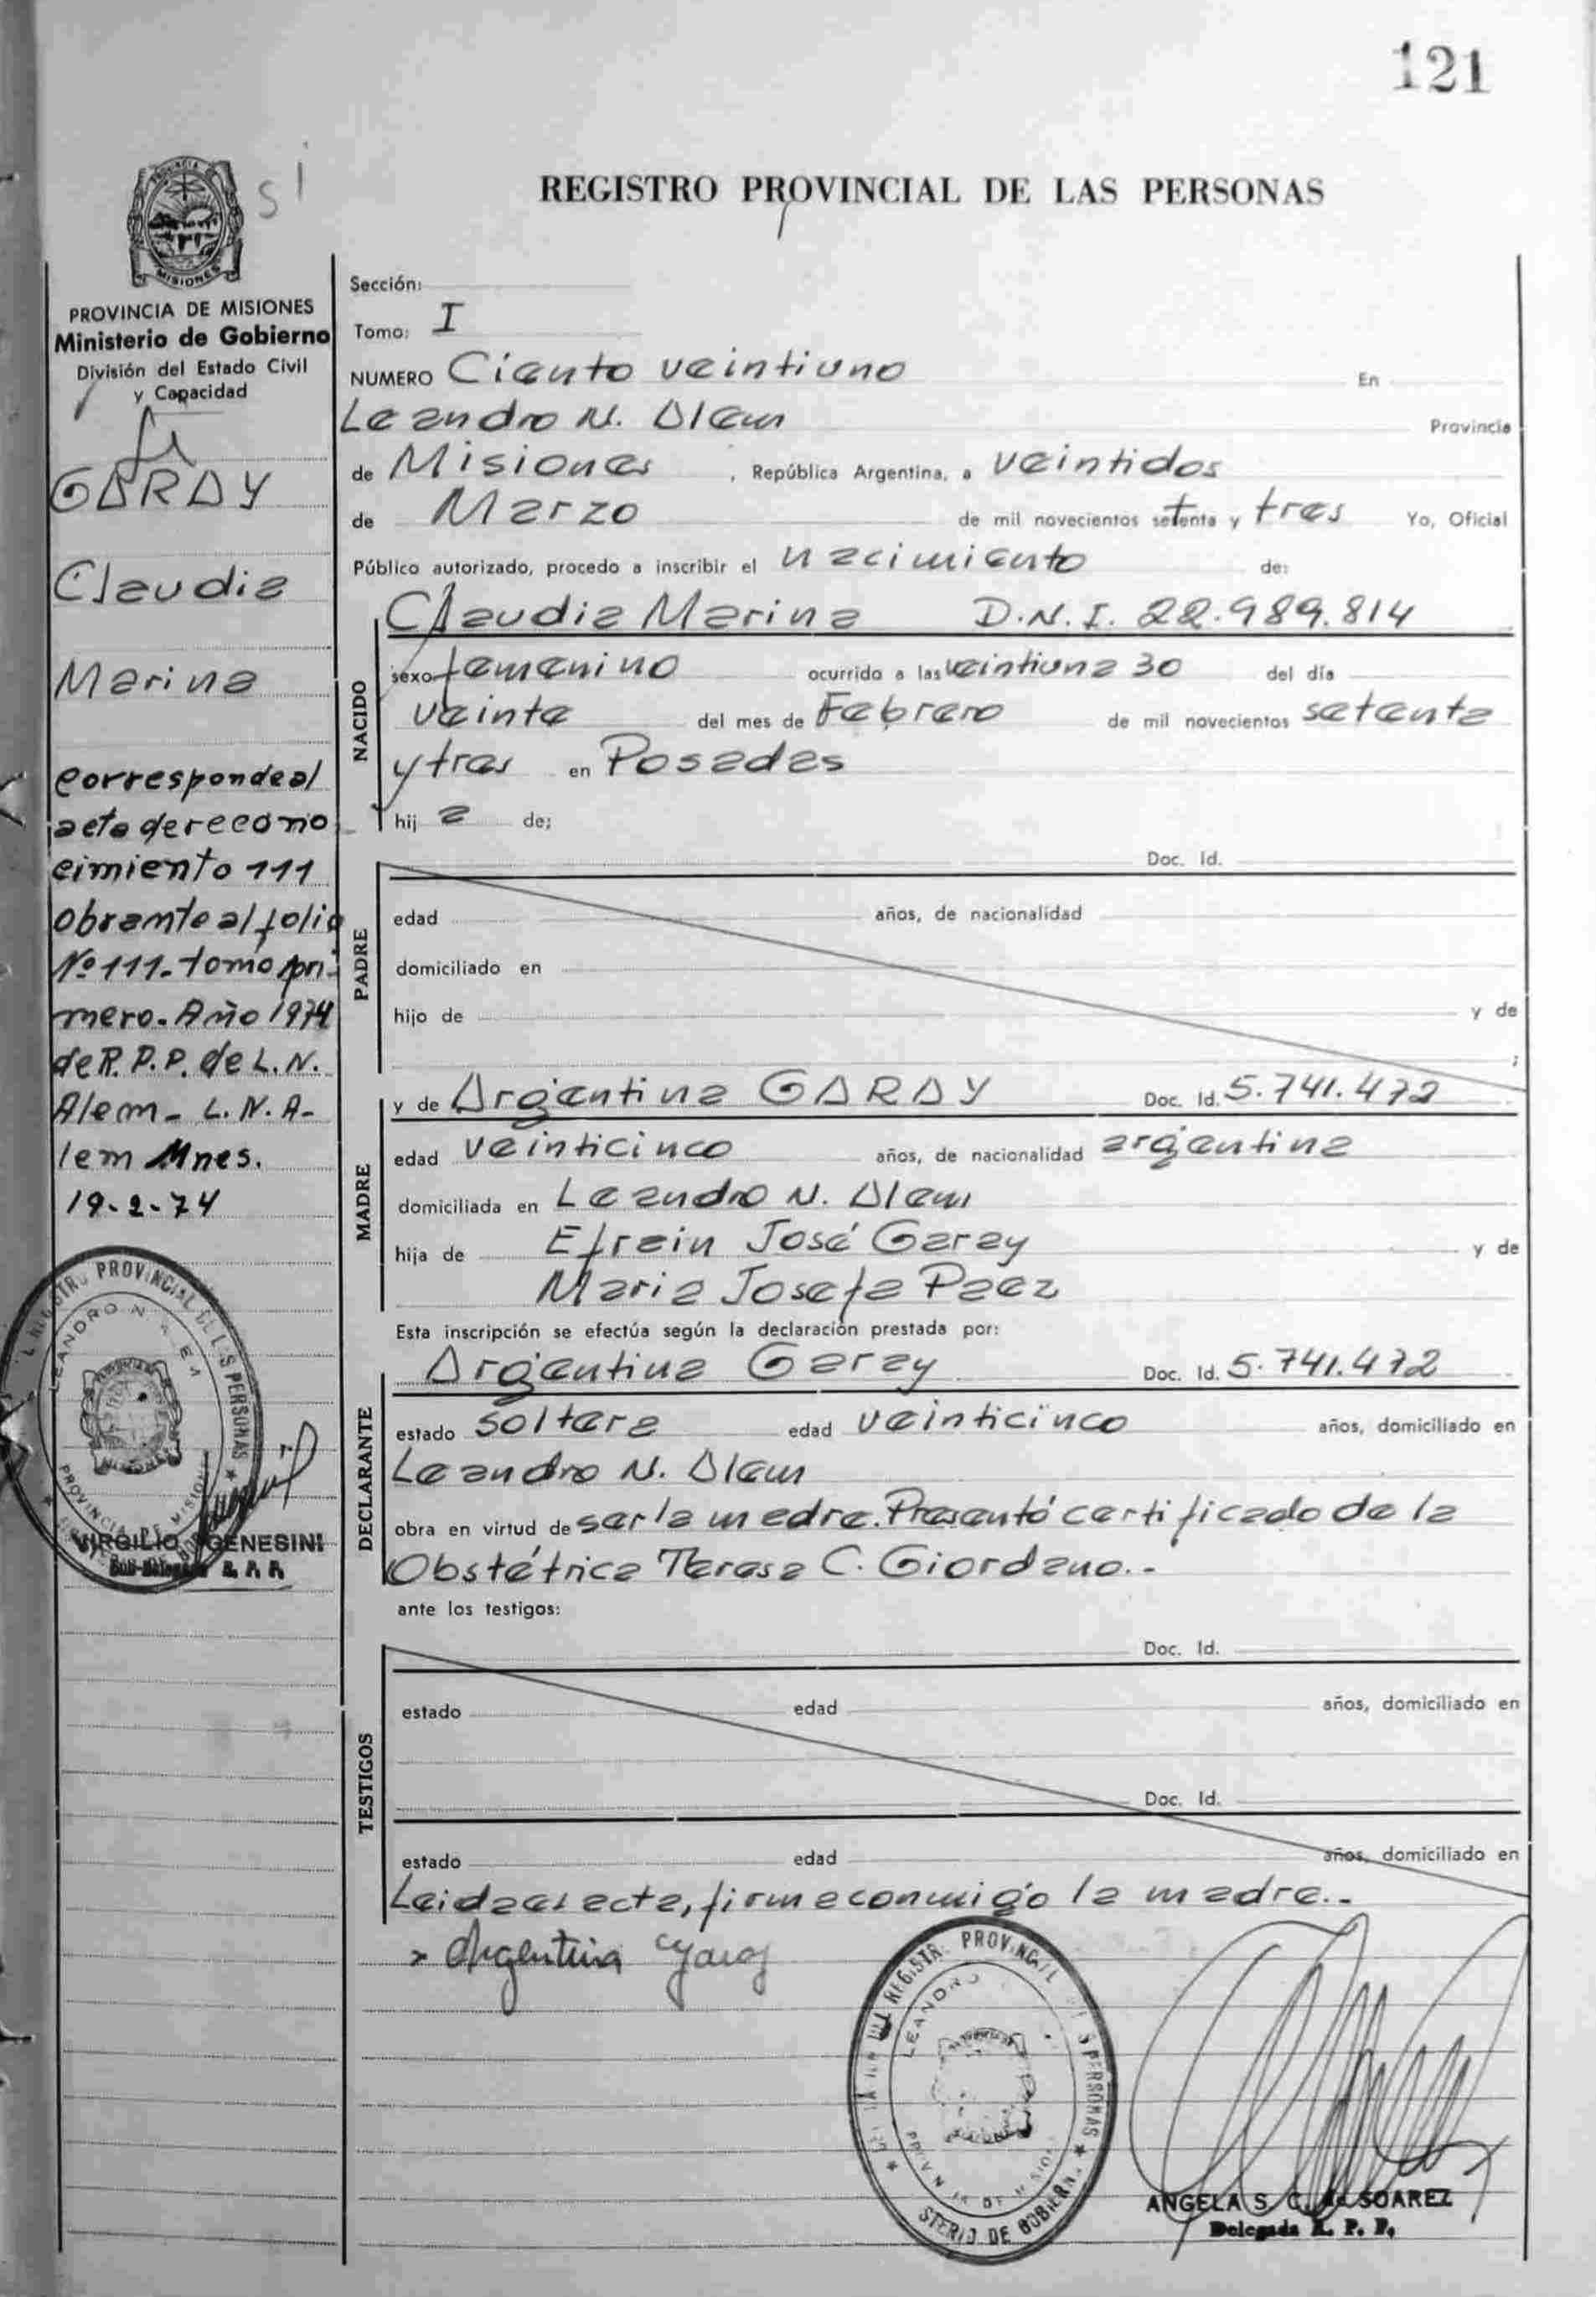 121
SI
REGISTRO PROVINCIAL DE LAS PERSONAS
MISIONES
PROVINCIA DE MISIONES
Ministerio de Gobierno
División del Estado Civil
y Capacidad
GARAY
Claudia
Marina
Corresponde al
acta de recono
cimiento 111
Obrante al folio
Nº 111. tomo pri-
mero. Año 1974
de R. P. P. de L. N.
Alem - L. N. A-
lem Mnes.
19-2-74
PROVINCIAL DE LAS PERSONAS
LEANDRO N. ALEM
PROVINCIA DE MISIONES
VIRGILIO GENESINI
Sub-Delegado R. P. P.
Sección:
Tomo: I
NUMERO Ciento veintiuno En
Leandro N. Alem Provincia
de Misiones , República Argentina, a veintidos
de Marzo de mil novecientos setenta y tres Yo, Oficial
Público autorizado, procedo a inscribir el nacimiento de:
NACIDO
Claudia Marina D.N.I. 22.989.814
sexo femenino ocurrido a las veintiuna 30 del día
veinte del mes de Febrero de mil novecientos setenta
y tres en Posadas
hij a de;
PADRE
Doc. Id.
edad años, de nacionalidad
domiciliado en
hijo de y de
;
MADRE
y de Argentina GARAY Doc. Id. 5.741.472
edad veinticinco años, de nacionalidad argentina
domiciliada en Leandro N. Alem
hija de Efrain José Garay y de
Maria Josefa Paez
Esta inscripción se efectúa según la declaración prestada por:
DECLARANTE
Argentina Garay Doc. Id. 5.741.472
estado soltera edad veinticinco años, domiciliado en
Leandro N. Alem
obra en virtud de ser la madre. Presentó certificado de la
Obstétrica Teresa C. Giordano.-
ante los testigos:
TESTIGOS
Doc. Id.
estado edad años, domiciliado en
Doc. Id.
estado edad años, domiciliado en
Leida el acta, firma conmigo la madre.-
x Argentina Garay
REGISTR. PROVINCIAL DE LAS PERSONAS
LEANDRO
STERIO DE GOBIERN
ANGELA S. C. de SOAREZ
Delegada R. P. P.